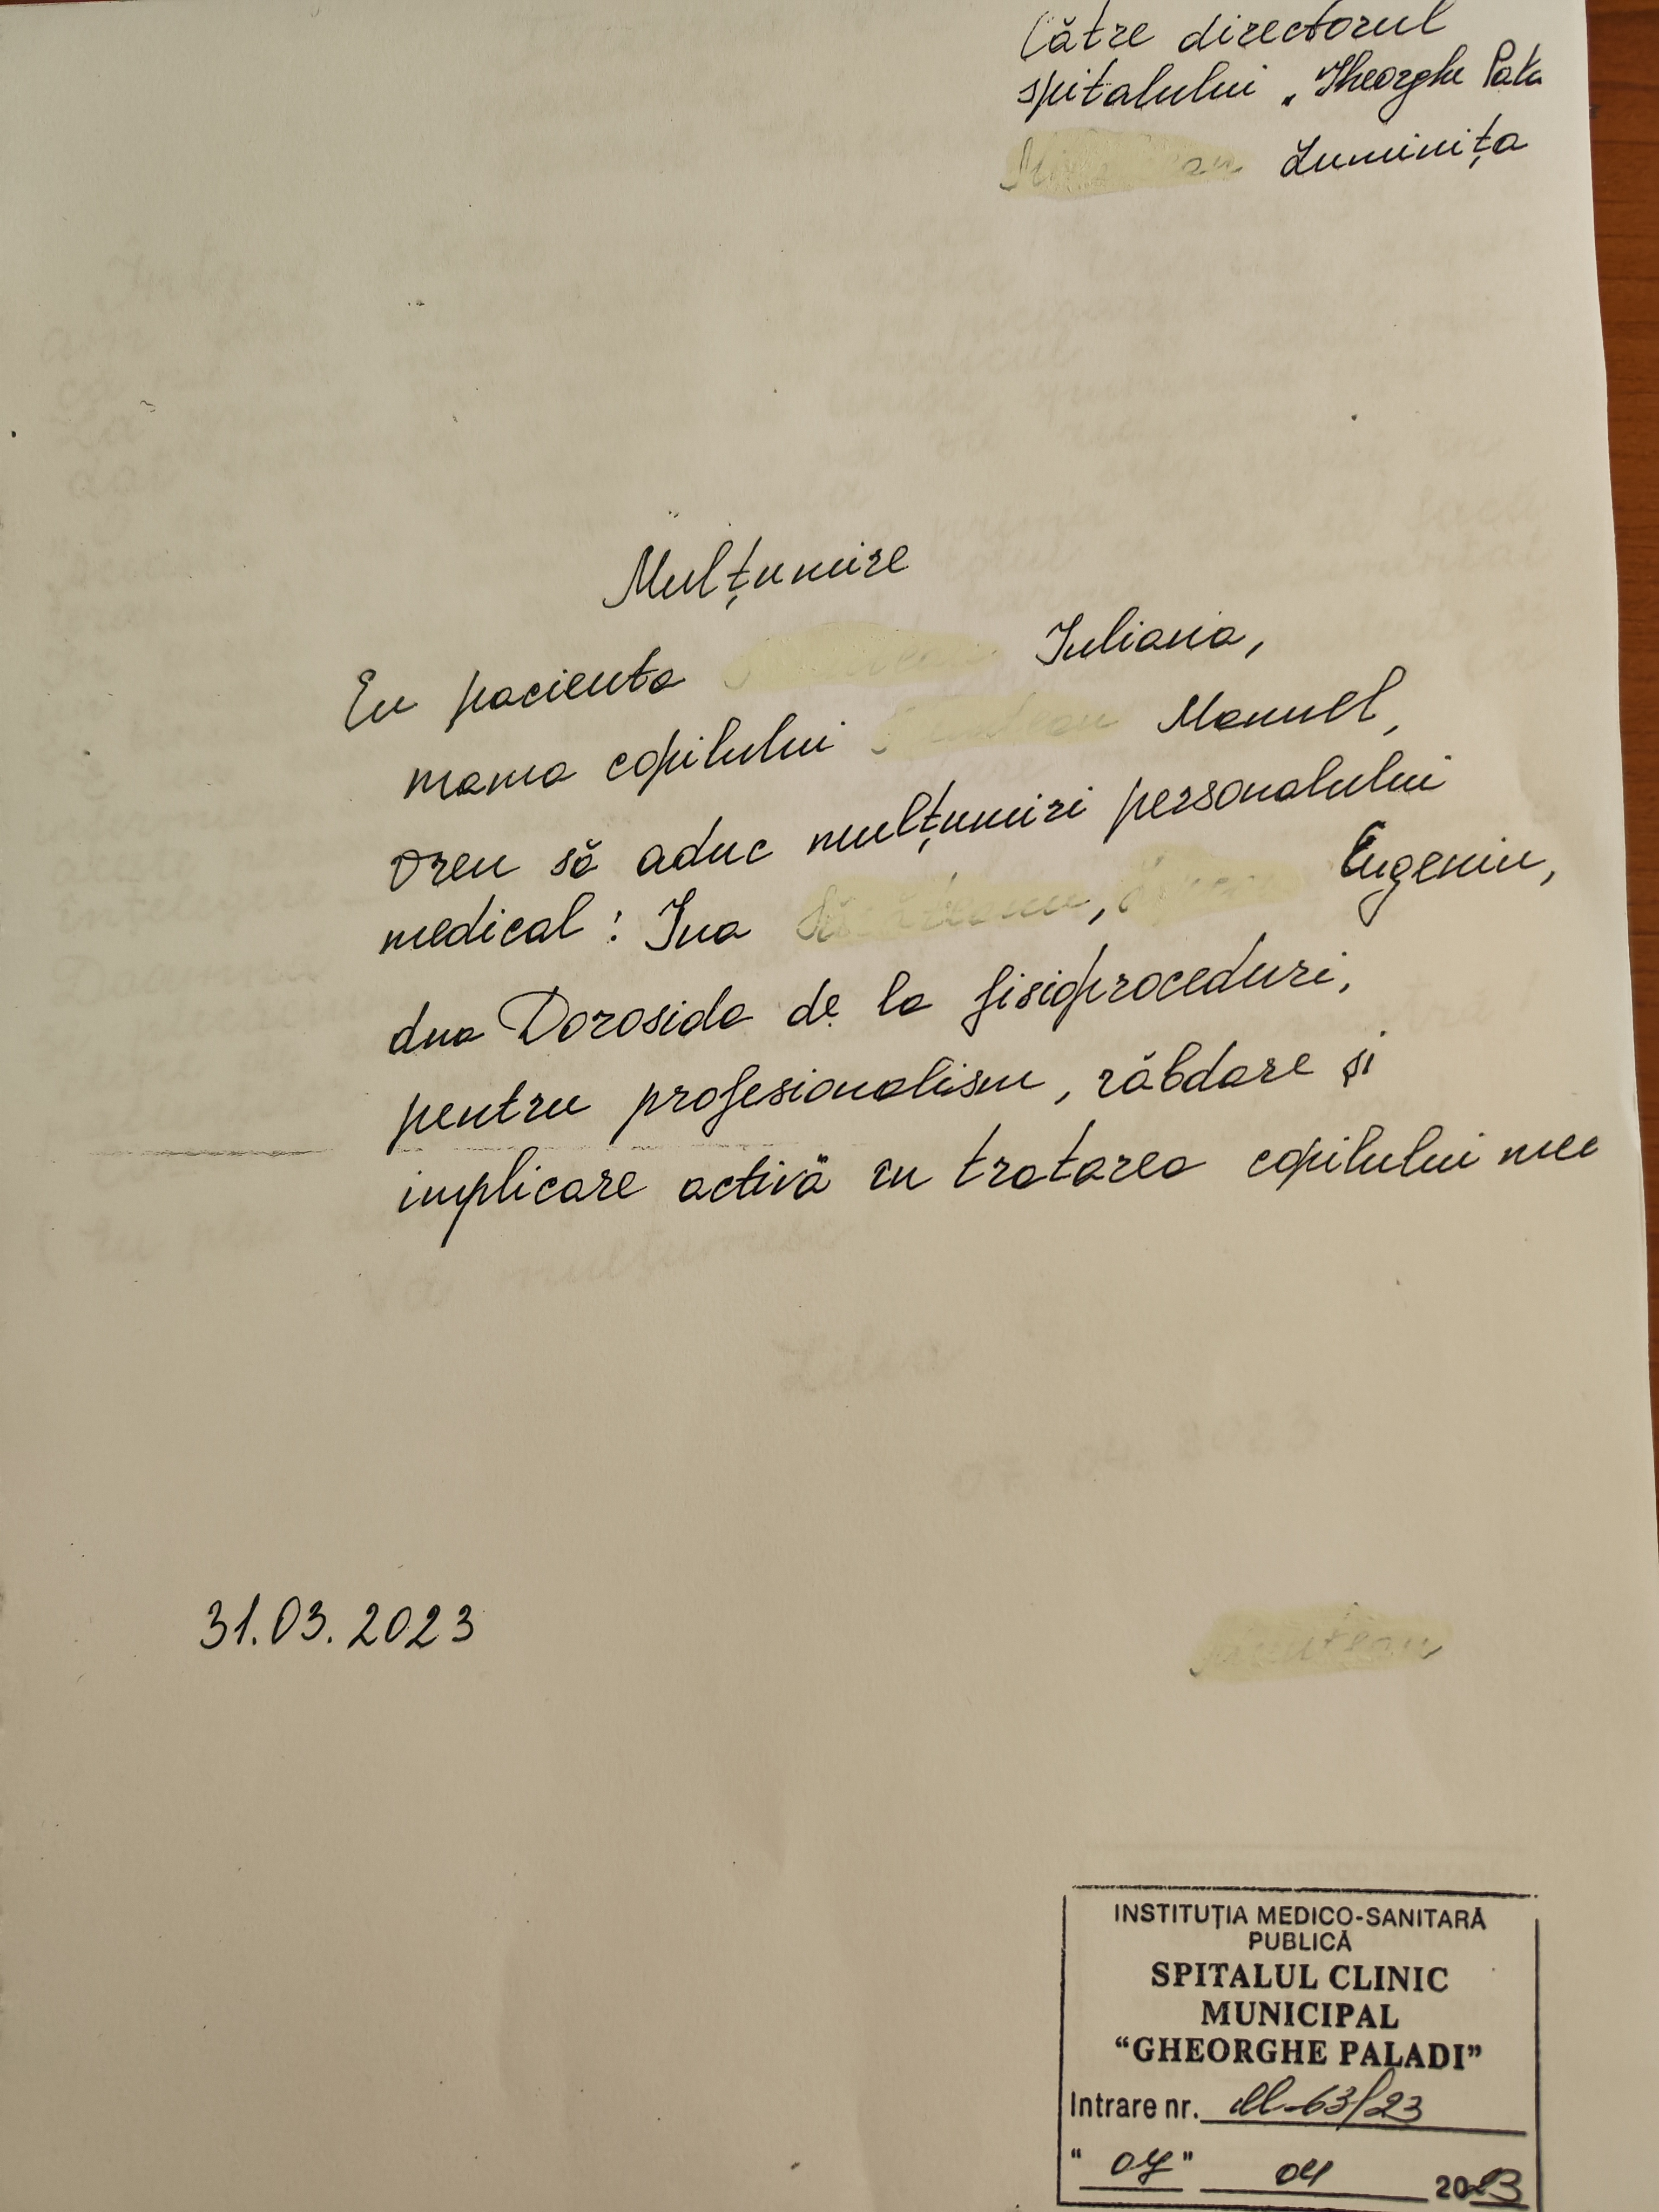 Către directorul
spitalului „Gheorghe Pala
Luminița
Mulțumire
Eu pacienta Iuliana,
mama copilului Manuel,
vreu să aduc mulțumiri personalului
medical: Ina , Eugeniu,
dna Dorosida de la fisioproceduri,
pentru profesionalism, răbdare și
implicare activă în tratarea copilului meu
31.03.2023
INSTITUȚIA MEDICO-SANITARĂ
PUBLICĂ
SPITALUL CLINIC
MUNICIPAL
“GHEORGHE PALADI”
Intrare nr. M-63/23
“ 07 ” 04 2023